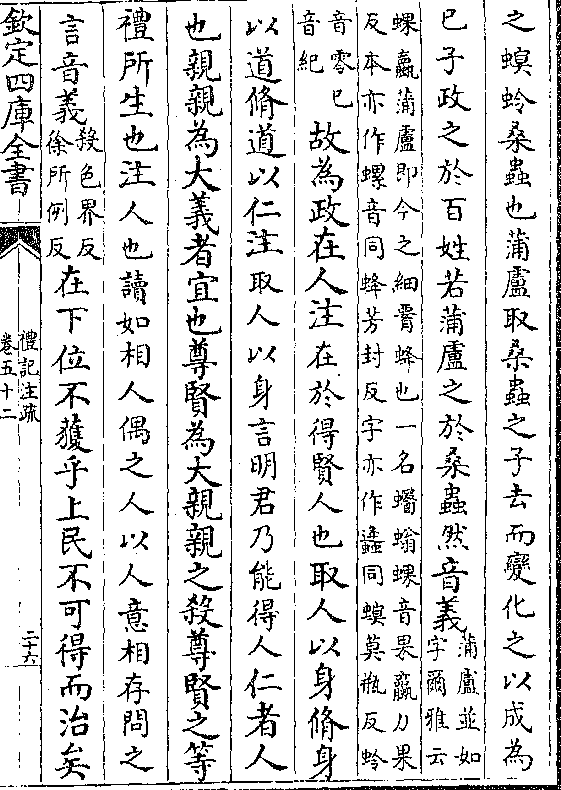 之螟蛉桑蟲也蒲盧取桑蟲之子去而變化之以成為
已子政之於百姓若蒲盧之於桑蟲然音義蒲盧並如字爾雅云
蜾蠃蒲盧即今之細腰蜂也一名蠮螉蜾音果蠃力果
反本亦作螺音同蜂芳封反字亦作蠭同螟莫瓶反蛉
音零已音紀故為政在人注在於得賢人也取人以身脩身
以道脩道以仁注取人以身言明君乃能得人仁者人
也親親為大義者宜也尊賢為大親親之殺尊賢之等
禮所生也注人也讀如相人偶之人以人意相存問之
言音義殺色界反徐所例反在下位不獲乎上民不可得而治矣
欽定四庫全書
禮記注疏
卷五十二
二十六